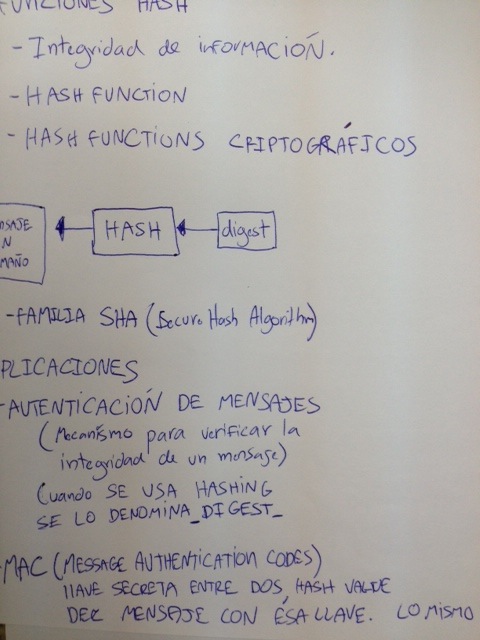 FUNCIONES HASH
- Integridad de INFORMACIÓN.
- HASH FUNCTION
- HASH FUNCTIONS CRIPTOGRÁFICOS
NSAJE
N
MAÑO
HASH
digest
- FAMILIA SHA (Secure Hash Algorithm)
PLICACIONES
- AUTENTICACIÓN DE MENSAJES
(Mecanismo para verificar la
integridad de un mensage)
Cuando SE USA HASHING
SE LO DENOMINA_DIGEST_
- MAC (MESSAGE AUTHENTICATION CODES)
llAVE SECRETA ENTRE DOS, HASH VALUE
DEL MENSAJE CON ÉSA LLAVE. LO MISMO